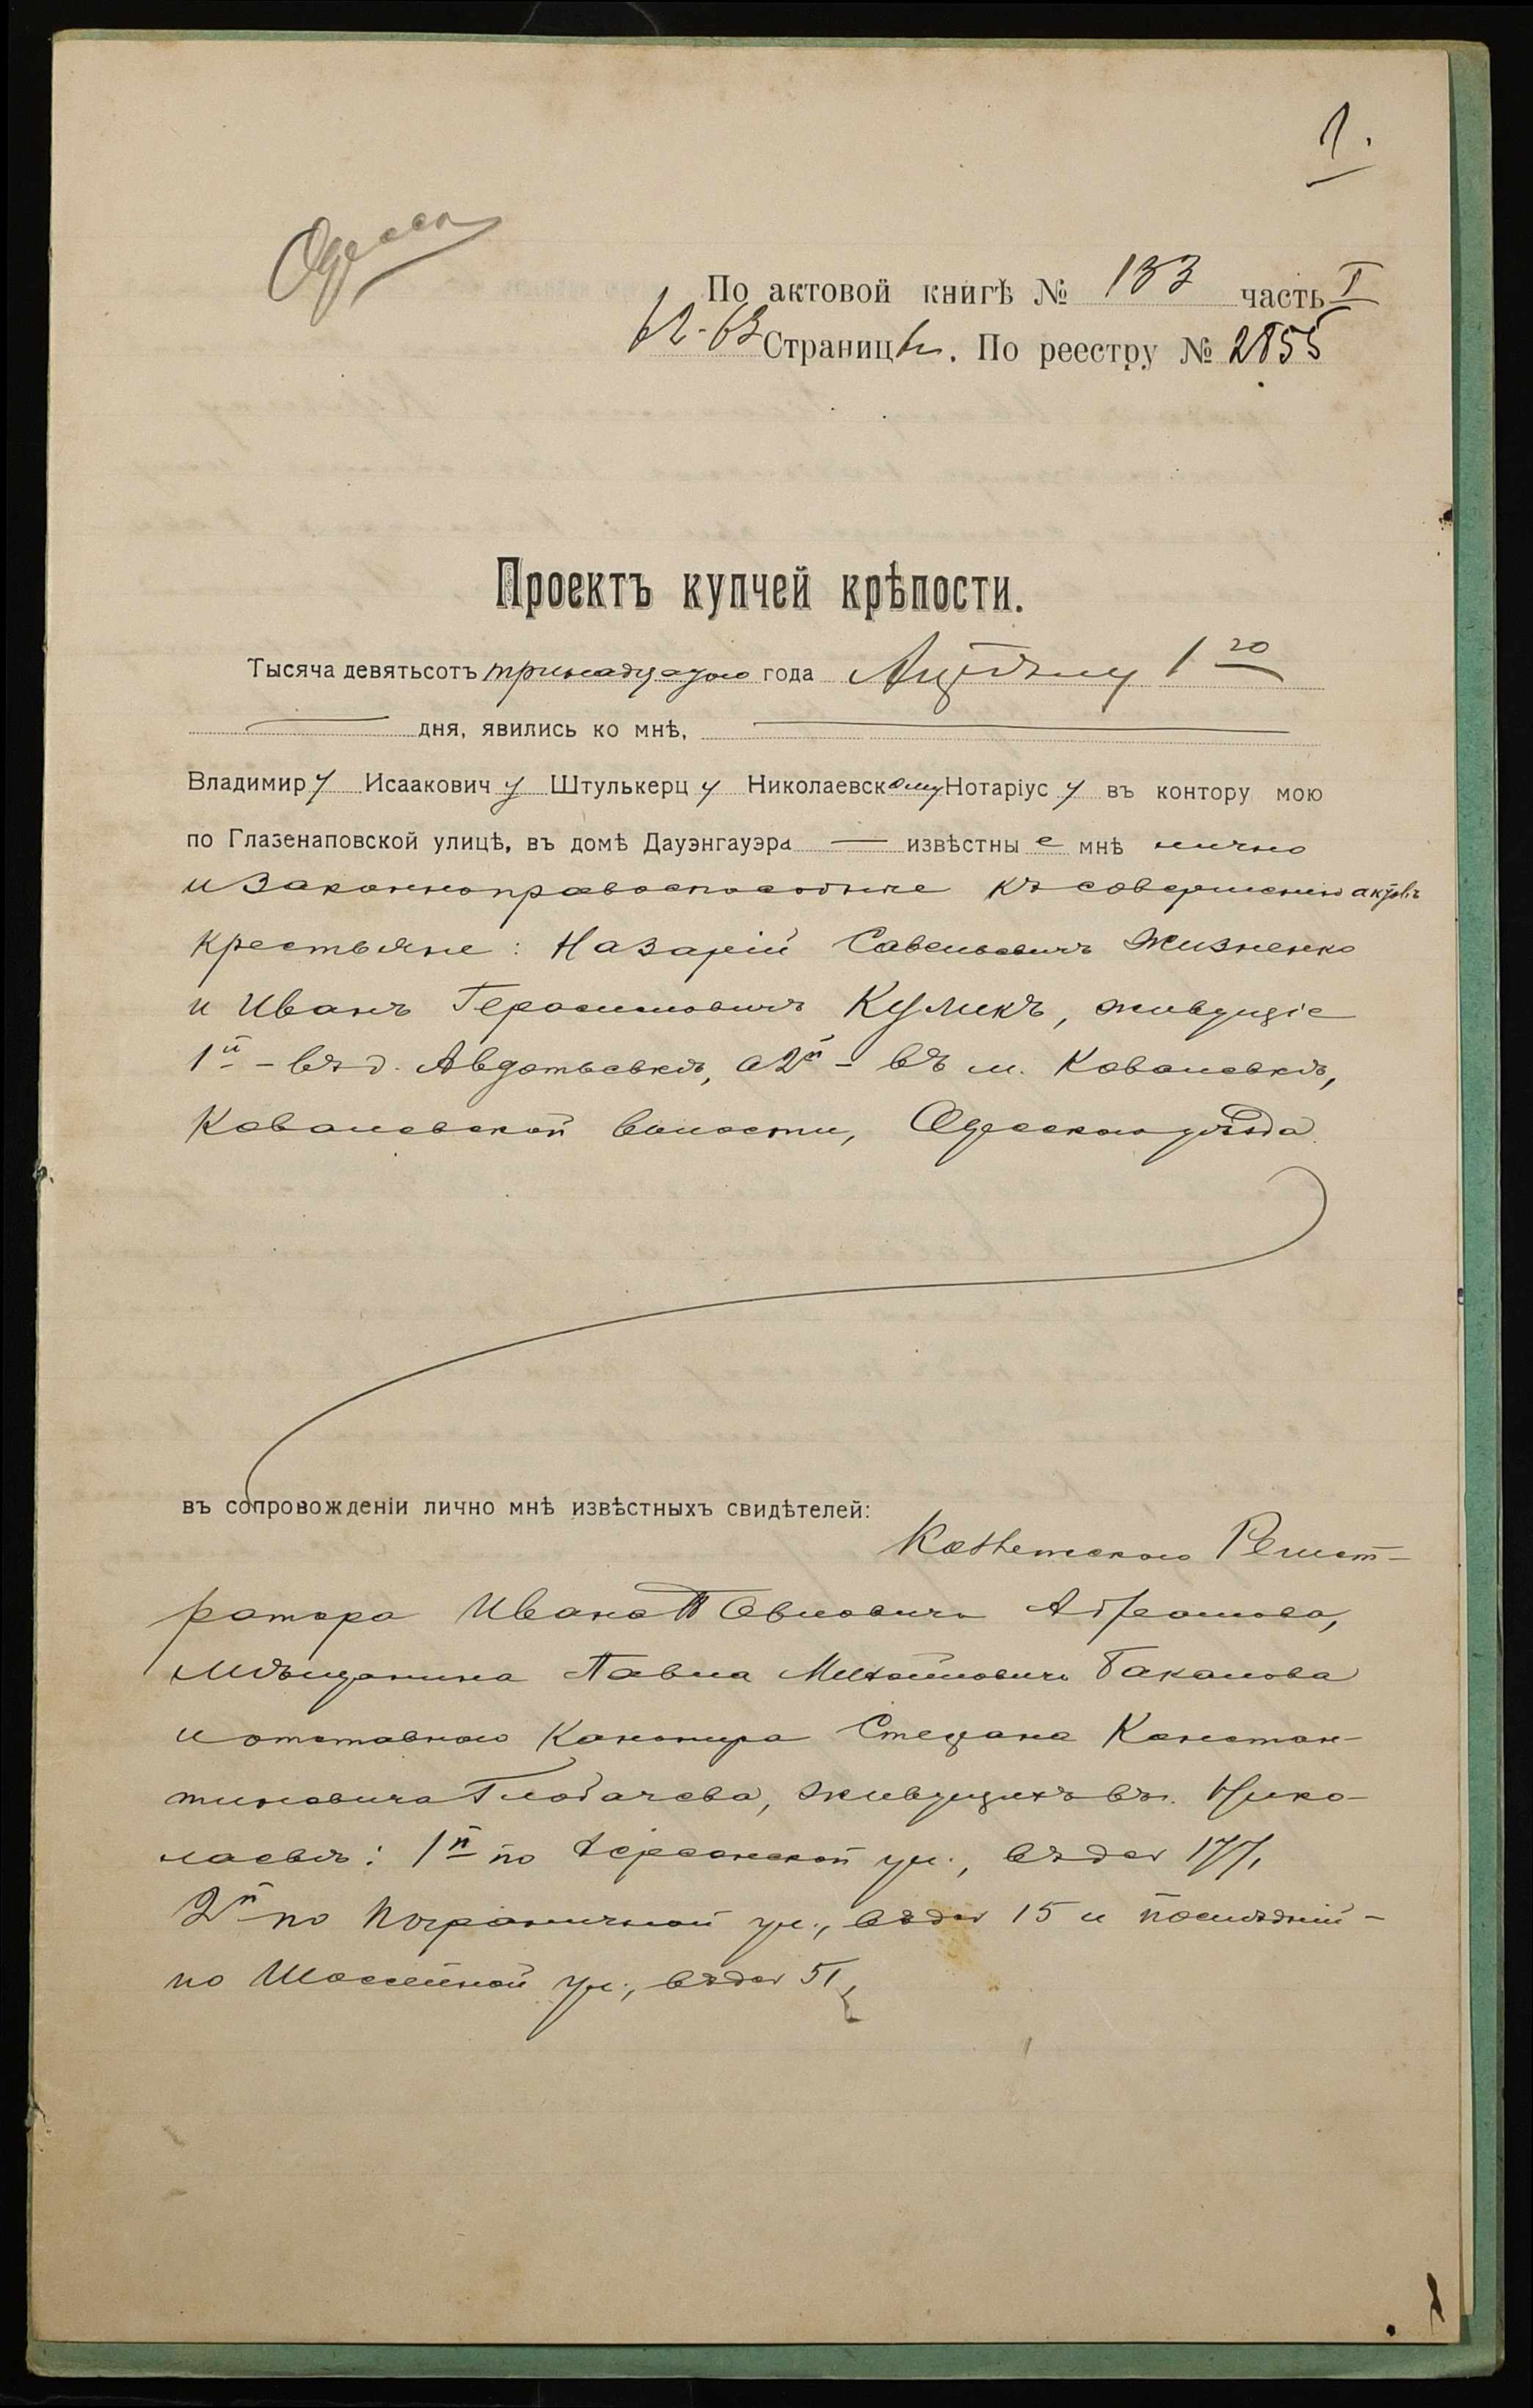 1.
Одесса
По актовой книгѣ № 133 часть I
62-63 Страницы. По реестру № 2855
Проектъ купчей крѣпости.
Тысяча девятьсотъ тринадцатаго года 1го
дня, явились ко мнѣ,
Владимиру Исааковичу Штулькерцу Николаевскому Нотаріусу въ контору мою
по Глазенаповской улицѣ, въ домѣ Дауэнгауэра — извѣстные мнѣ лично
и законноправоспособные къ совершенію актовъ
крестьяне: Назарій Савельевичъ Жизненко
и Иванъ Герасимовичъ Куликъ, живущіе
1й – въ д. Авдотьевкѣ, а 2й – въ м. Ковалевкѣ,
Ковалевской волости, Одесскаго уѣзда
въ сопровожденіи лично мнѣ извѣстныхъ свидѣтелей:
Коллежскаго Регист-
ратора Ивана Павловича Абрамова,
мѣщанина Павла Михайловича Бакалова
и отставного Канонира Стефана Констан-
тиновича Глобачева, живущихъ въ г. Нико-
лаевѣ: 1й по Херсонской ул., въ д. №
2й по Пограничной ул., въ д. № 15 и послѣдній –
по Шоссейной ул., въ д. № 51,